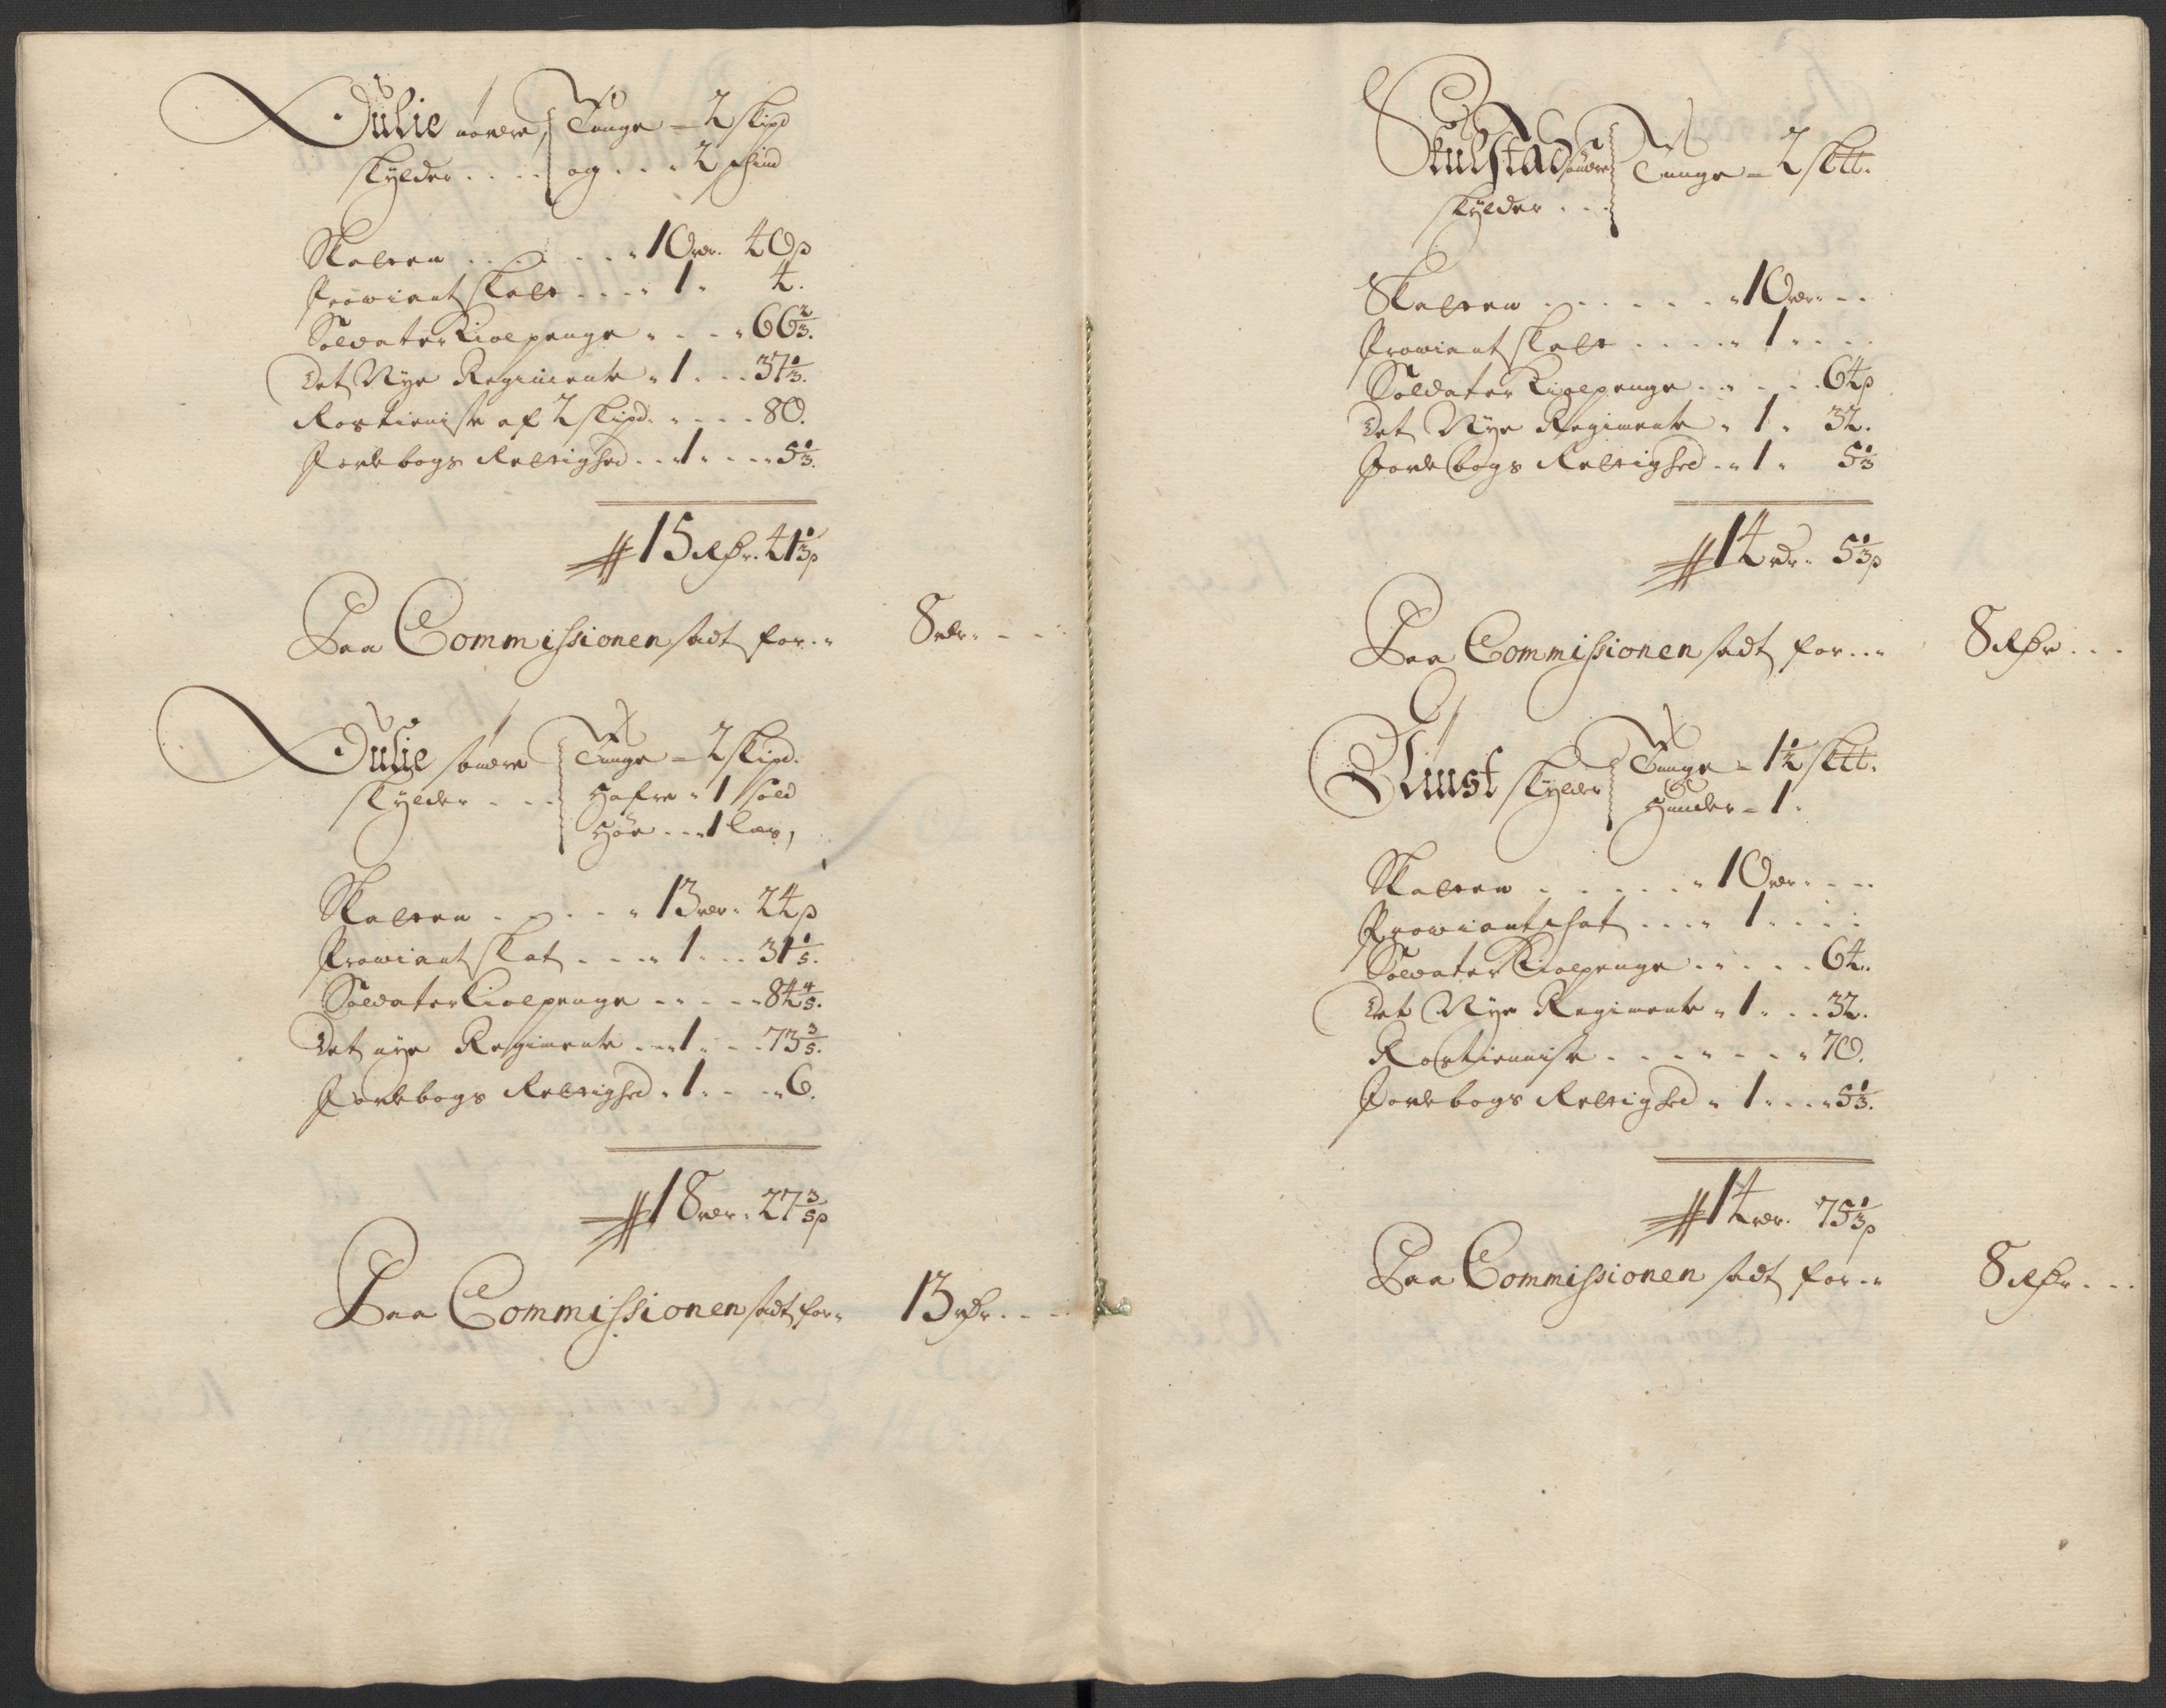 Dulie nordre Tunge – 2 skipd
skylder .... og ... 2 Hind
Skatten ...... 10 rdr. 40 s
Proviant skatt .... 1. 4.
Soldater Kiolpenge .... 66 2/3.
Det Nye Regimente . 1 ... 37 1/3.
Rostieniste af 2 skipd. .... 80.
Jordebogs Rettighed ... 1 .... 5 1/3.
15 Rdr. 41 1/3 s
Paa Commissionen sadt for ..
8 rdr. - -
Dulie söndre Tunge – 2 skipd.
skylder ... Hafre . 1 sold
Höe ... 1 læs,
Skatten ..... 13 rdr. 24 s
Proviant skat .... 1 ... 31 1/5.
Soldater Kiolpenge ..... 84 4/5.
Det nye Regimente .... 1 ... 73 3/5.
Jordebogs Rettighed . 1. ... 6.
18 rdr. 27 3/5 s
Paa Commissionen sadt for.
13 rdr. ...
Skulstad söndre Tunge – 2 sktt.
skylder ...
Skatten ...... 10 rdr. ..
Proviant skatt ..... 1 ....
Soldater Kiolpenge ..... 64 s
Det Nye Regimente . 1 . 32.
Jordebogs Rettighed .. 1. 5 1/3
14 rdr. 5 1/3 s
Paa Commissionen sadt for ...
8 Rdr ...
skylder Tunge – 1 1/2 sktt.
Huuder – 1.
Skatten ...... 10 rdr. ...
Proviantschat .... 1. ...
Soldater Kiolpenge ..... 64.
Det Nye Regimente . 1. .. 32.
Rostienniste ....... 70.
Jordebogs Rettighed . 1. ... 5 1/3.
14 rdr. 75 1/3 s
Paa Commissionen sadt for ..
8 Rdr. ...